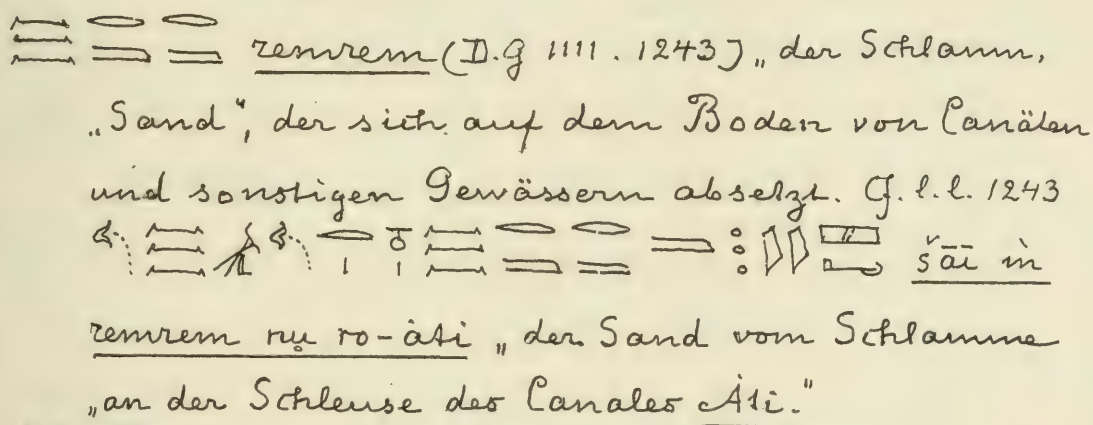 remrem (D.G 1111. 1243) „der Schlamm,
„Sand“, der sich auf dem Boden von Canälen
und sonstigen Gewässern absetzt. Cf. l. l. 1243
šāi in
remrem nu ro-áti „der Sand vom Schlamme
„an der Schleuse des Canales Áti.“